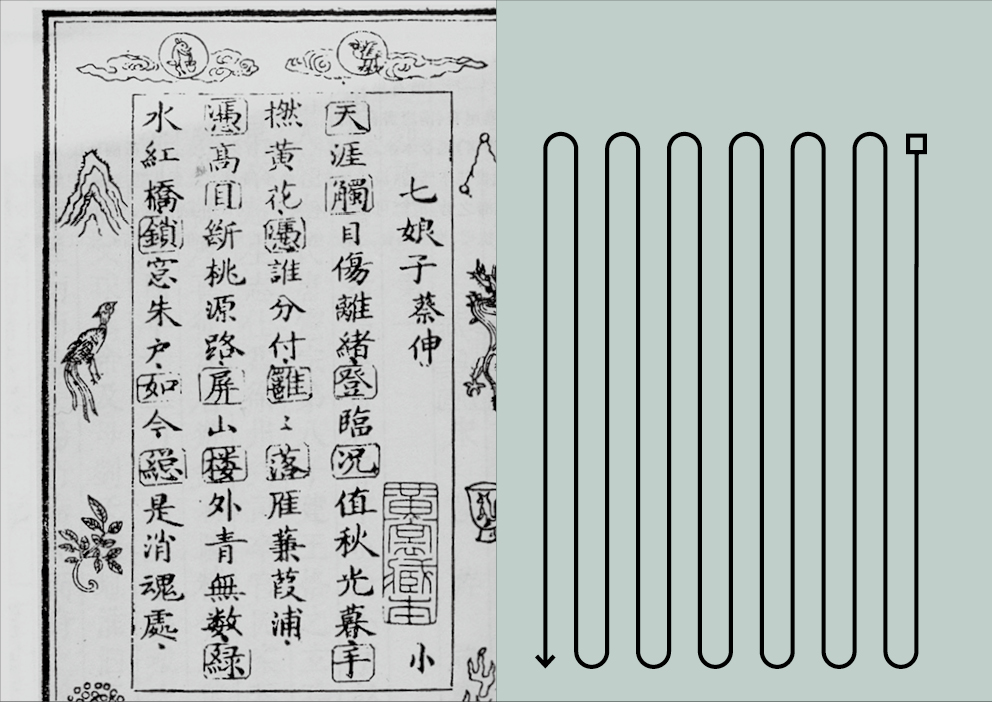 七娘子 蔡伸 小
天涯觸目傷離緒登臨况值秋光暮手
撚黄花憑誰分付雝〻落雁蒹葭浦
憑高目斷桃源路屏山楼外青無数緑
水紅橋鎖窓朱户如今緫是消魂處